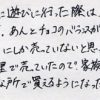 に遊びに行った際は、
、あんとチョコのバランスが
にしか売ていないと思っ
屋で売ていたので、家族
な所で買えるようになっ